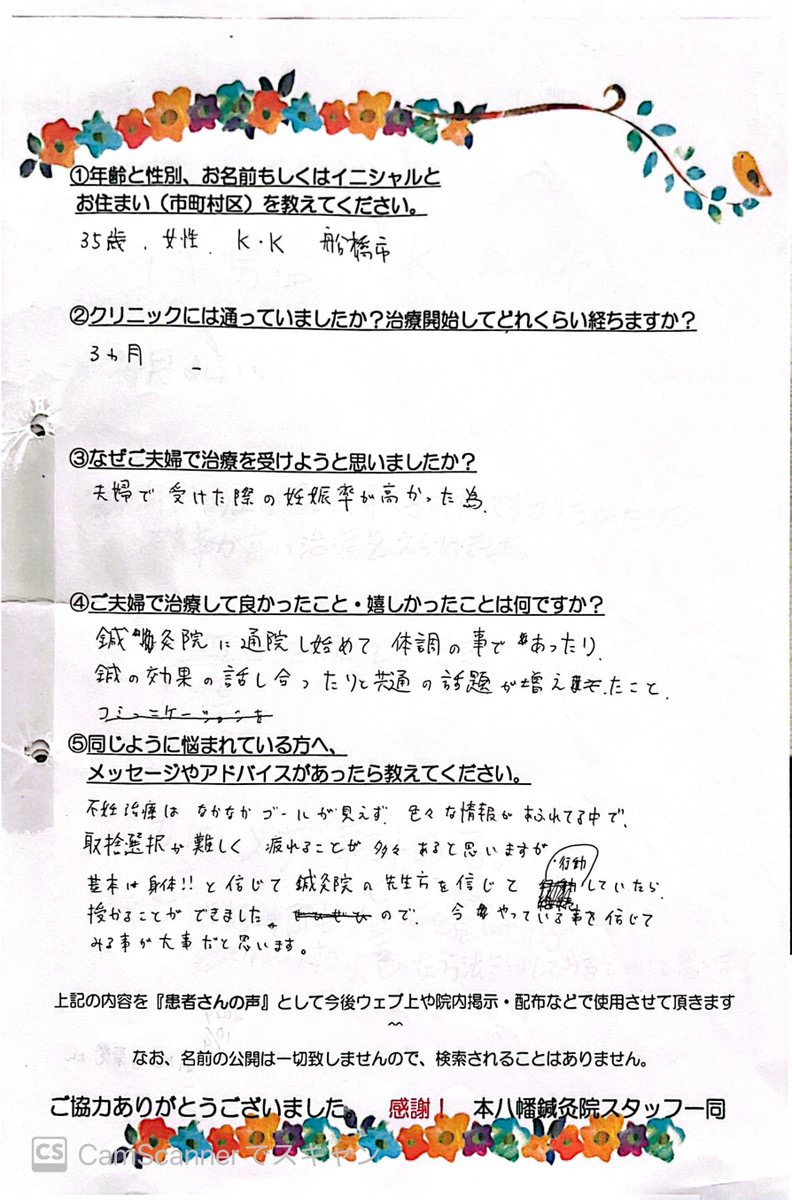 ①年齢と性別、お名前もしくはイニシャルと
お住まい（市町村区）を教えてください。
35歳、女性、K・K 船橋市
②クリニックには通っていましたか？治療開始してどれくらい経ちますか？
3ヵ月
③なぜご夫婦で治療を受けようと思いましたか？
夫婦で受けた際の妊娠率が高かった為。
④ご夫婦で治療して良かったこと・嬉しかったことは何ですか？
鍼灸院に通院し始めて体調の事であったり、
鍼の効果の話し合ったりと共通の話題が増えたこと。
コミュニケーションを
⑤同じように悩まれている方へ、
メッセージやアドバイスがあったら教えてください。
不妊治療はなかなかゴールが見えず、色々な情報があふれてる中で、
取捨選択が難しく疲れることが多々あると思いますが
・行動
基本は身体!!と信じて鍼灸院の先生方を信じてしていたら、
授かることができました。ぜひぜひので、今やっている事を信じて
みる事が大事だと思います。
上記の内容を『患者さんの声』として今後ウェブ上や院内掲示・配布などで使用させて頂きます
～
なお、名前の公開は一切致しませんので、検索されることはありません。
ご協力ありがとうございました。 感謝！ 本八幡鍼灸院スタッフ一同
CS CamScanner でスキャン